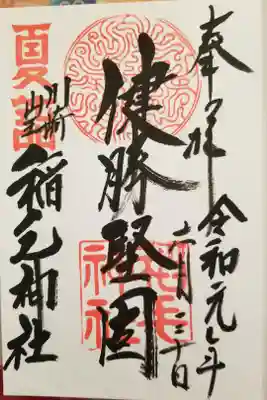 奉拝 令和元年
六月三十日
健勝堅固
稲毛
神社
夏詣
川崎
山王
稲毛神社